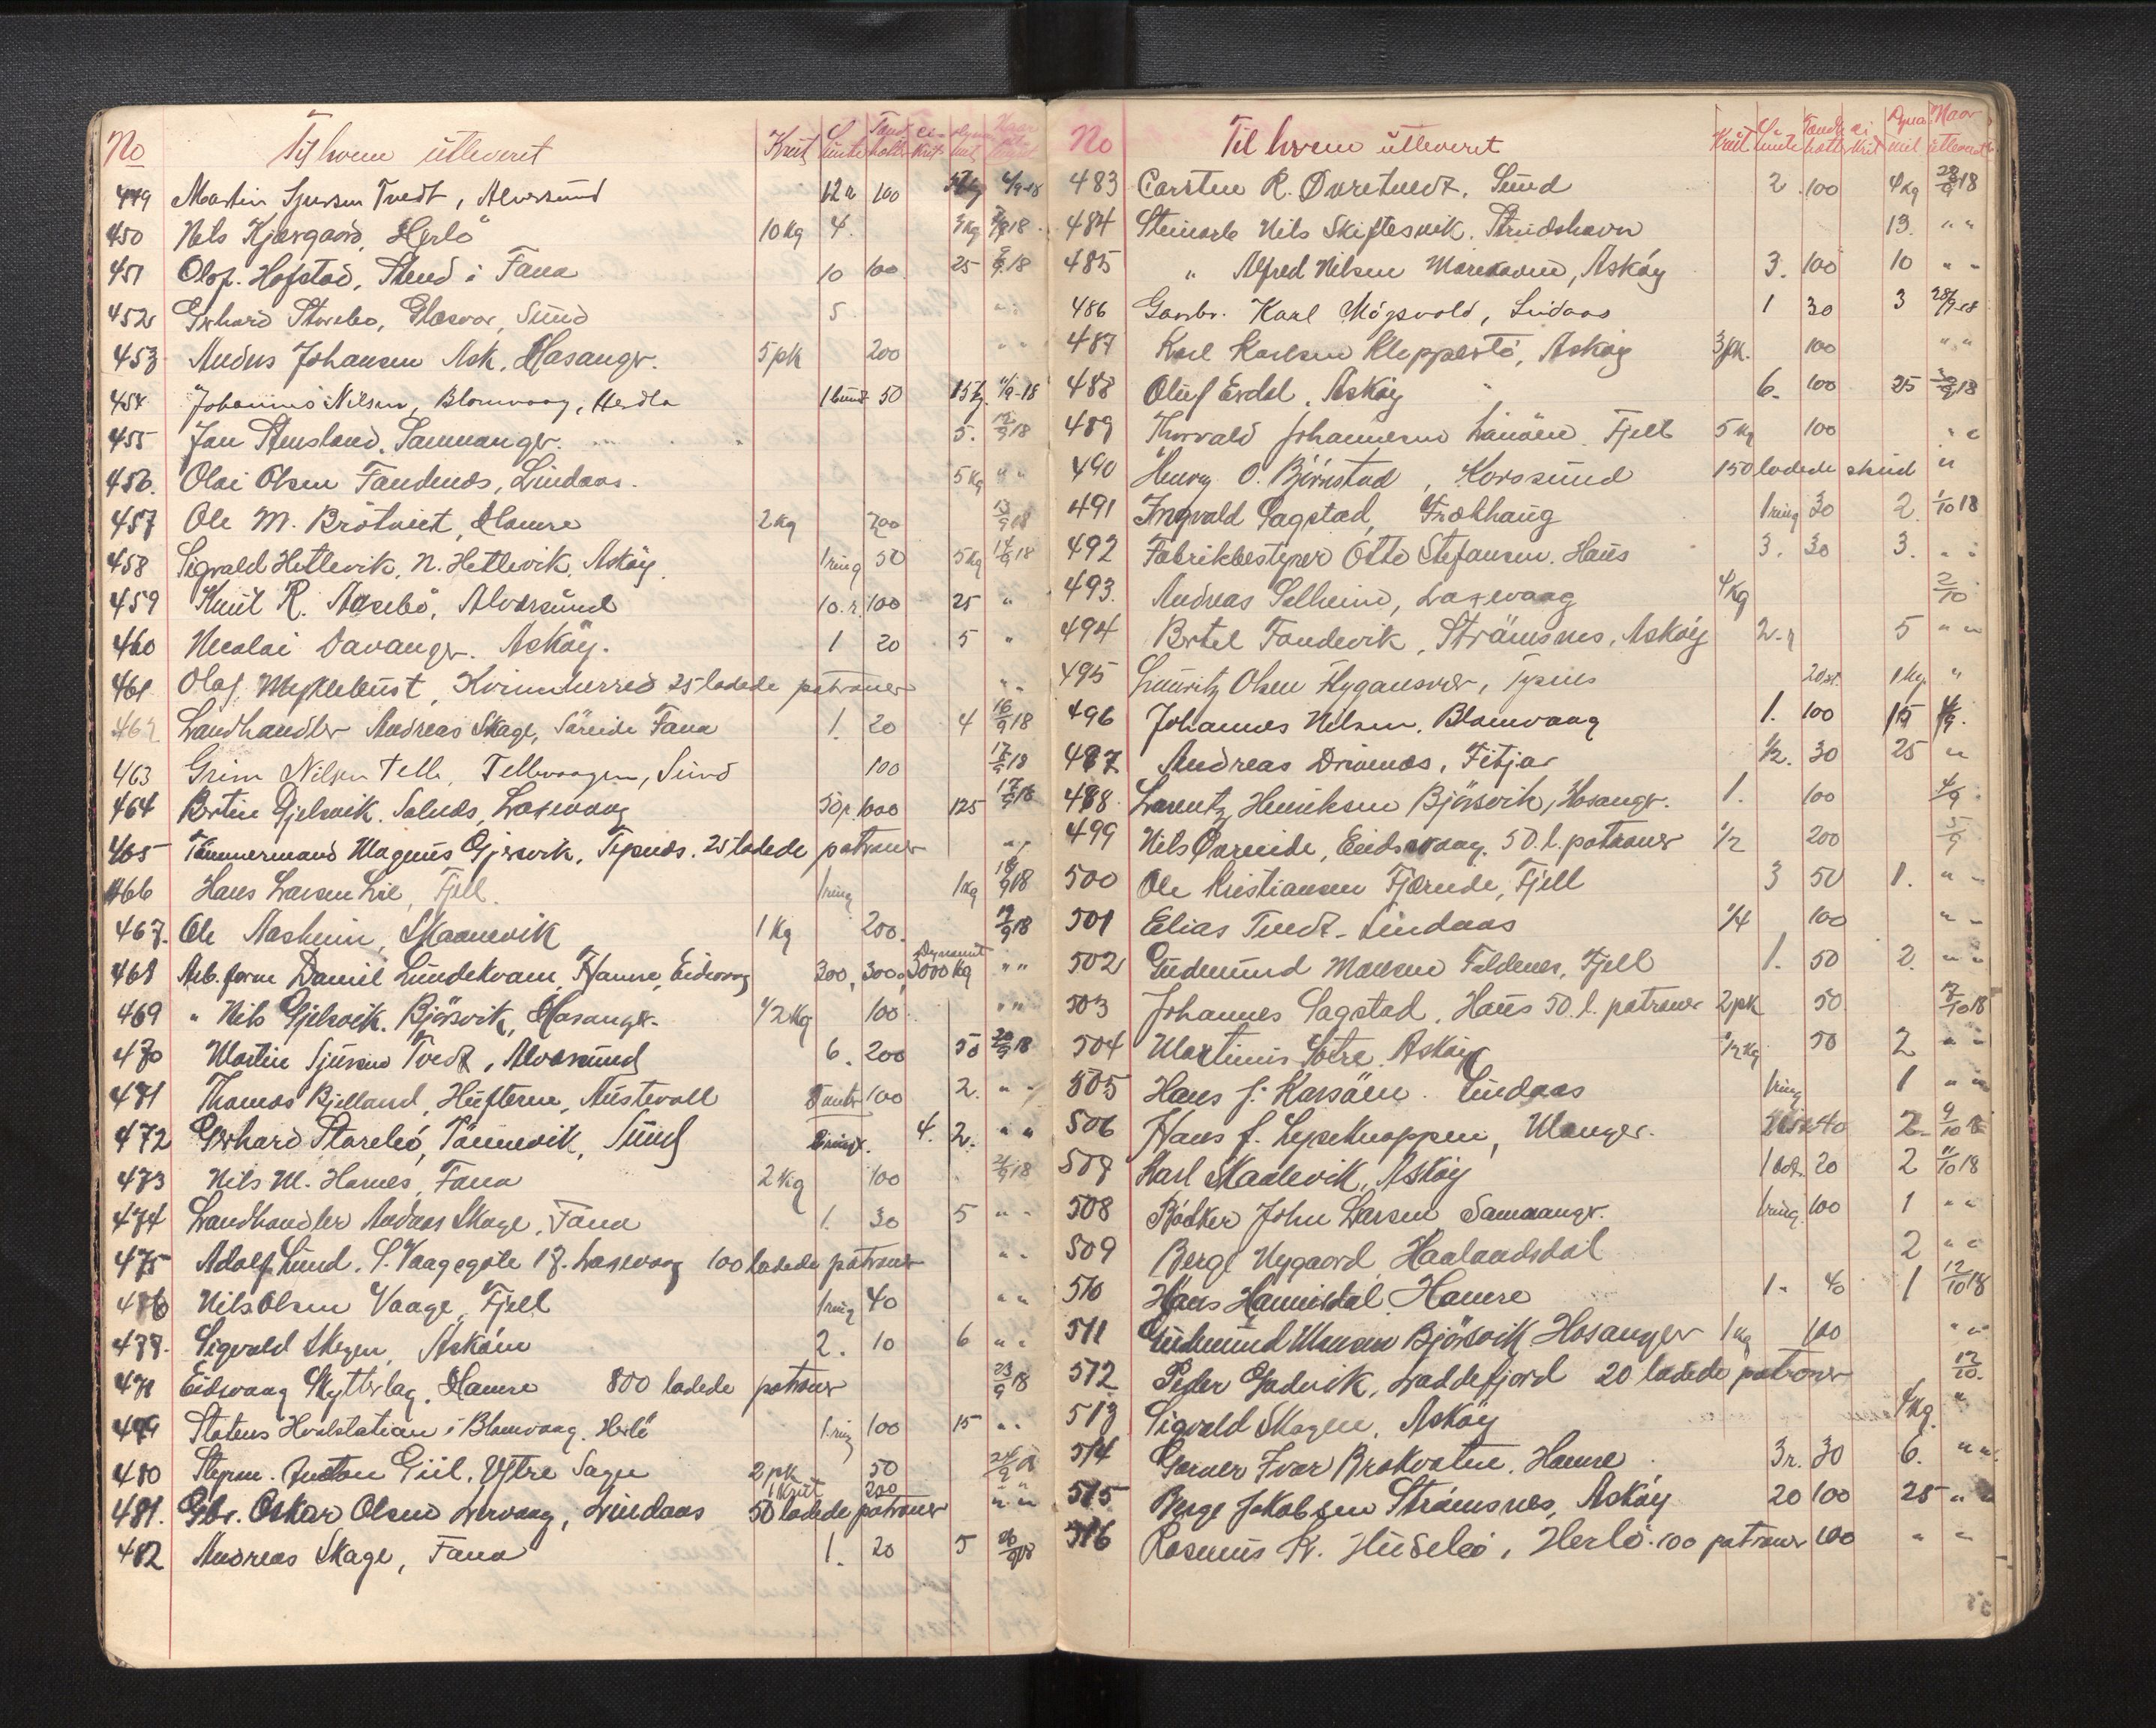 No Til hvem utleveret Krut Lunte Tændhatter Dynamit Naar
449 Martin Sjursen Tvedt, Alversund 12 r 100 4/9-18
450 Nels Kjærgaard, Herlö 10 kg 4. 3kg 18
451 Olof. Hofstad, Stend i Fana 10 100 25 18
452 Gerhard Storebö, Glesvær, Sund 5 " "
453 Anders Johansen Ask, Hosanger. 5 pk 200 " "
454 Johannes Nilsen, Blomvaag, Herdla 1 bunt 50 15 kg. 11/9-18
455 Jan Stensland, Samnanger. 5. 12/9 18
456. Olai Olsen Fandnes, Lindaas. 5 kg " "
457 Ole M. Brötveit, Hamre 2 kg 200 13/9 18
458 Sigvald Hetlevik, N. Hetlevik, Asköy 1 ring 50 5 kg 14/9 18
459 Knut R. Aasebö, Alversund 10. r. 100 25 "
460 Necolai Davanger. Asköy. 1 20 5 "
461 Olaf Myklebust, Kvinnherred 25 ladede patroner " "
462 Landhandler Andreas Skage, Söreide Fana 1. 20 4 16/9 18
463 Grim Nilsen Telle, Tellevaagen, Sund 100 17/9 18
464 Bertin Gjelsvik. Salnes, Laxevaag 50 r. 1000 125 17/9 18
465 Tømmermand Magnus Gjersvik, Tysnes. 25 ladede patroner " "
466 Hans Larsen Lie, Fjell. 1 ring 1 kg 18/9 18
467. Ole Aasheim, Skaanevik 1 kg 200. 19/9 18
468 Arb. form Daniel Lundekvam, Hamre, Eidsvaag 300, 3000, Dynamit 3000 kg " "
469 " Nils Gjelsvik. Björsvik, Hosanger. 1/2 kg 100 " "
470 Martin Sjursen Tvedt, Alversund 6. 200 50 20/9 18
471 Thomas Bjelland, Huftern, Austevoll 100 2. " "
472 Gerhard Storebö, Tönnevik, Sund 4. 2. " "
473 Nils M. Hamnes, Fana 2 kg 100 21/9 18
474 Landhandler Andreas Skage, Fana 1. 30 5 " "
475 Adolf Lund. S. Vaagegate 17. Laxevaag 100 ladede patroner " "
476 Nils Olsen Vaage, Fjell 1 ring 40 " "
477. Sigvald Skagen, Asköen 2. 10 6 " "
478 Eidsvaag Skytterlag, Hamre 800 ladede patroner 23/9 18
479 Statens Hvalstation i Blomvaag. Herlö 1. ring 100 15 " "
480 Styrm. Anton Giil, Ytre Sogn 2 pk 50 24/9 18
481. Gbr. Oskar Olsen Lervaag, Lindaas 1 krut 200 50 ladede patroner " "
482 Andreas Skage, Fana 1. 20 5 26/9 18
No Til hvem utleveret Krut Lunte Tændhatter Krut Dynamit Naar utleveret
483 Carsten R. Övretvedt, Sund 2. 100 4 kg 28/9 18
484 Steinarb Nils Skiftesvik. Strudshavn 13. " "
485 " Alfred Nilsen Marikoven, Asköy 3. 100 10 " "
486 Gaarbr. Karl Mögsvold, Lindaas 1 30 3 28/9-18
487 Karl Karlsen Kleppestö, Asköy 3 pk. 100 " "
488 Oluf Erdal, Asköy 6. 100 25 30/9 18
489 Thorvald Johannesen Lanöen Fjell 5 kg 100 " "
490 Henry O. Björnstad, Korssund 150 ladede skud "
491 Ingvald Sagstad, Frækhaug 1 ring 30 2. 1/10 18
492 Fabrikbestyrer Otto Stefansen. Haus 3. 30 3. " "
493. Andreas Selheim, Laxevaag 4 kg 2/10
494 Bertel Tondevik, Strömsnes, Asköy 2. r 5 " "
495 Lauritz Olsen Flygansvær, Tysnes 20 st. 1 kg. "
496 Johannes Nilsen, Blomvaag 1. 100 15
497 Andreas Drivenes, Fitjar 1/2. 30 25 "
498 Laurentz Henriksen Björsvik, Hosanger. 1. 100 4/9
499 Nils Övreeide, Eidsvaag. 50. l. patroner 1/2 200 5/9
500 Ole Kristiansen Fjæreide, Fjell 3 50 1. " "
501 Elias Tvedt. Lindaas 1/4 100 " "
502 Gudmund Monsen Foldnes, Fjell 1. 50 2. " "
503 Johannes Sagstad, Haus 50. l. patroner 2 pk 50 7/10 18
504 Martinus Sotre. Asköy 1/2 kg 50 2 " "
505 Hans J. Karsöen. Lindaas 1 ring 1 " "
506 Hans J. Lepseknappen, Manger. 40 2 9/10 18
507 Karl Skaalevik, Asköy 1 bdt. 20 2 11/10 18
508 Bödker John Larsen Samnanger. 1 ring. 100 1 " "
509 Berge Nygaard, Haalandsdal 2 " "
510 Hans Hannisdal, Hamre 1. 40 1 12/10 18
511 Gudmund Monsen Björsvik, Hosanger 1 kg 100 " "
512 Peder Gadvik, Laddefjord 20 ladede patroner 12/10.
513 Sigvald Skagen, Asköy 4 kg. "
514 Garver Ivar Brekvatne, Hamre 3 r. 30 6. " "
515 Berge Jakobsen Strömsnes, Asköy 20 100 25 " "
516 Rasmus Kr. Husebö, Herlö. 100 patroner 100 " "